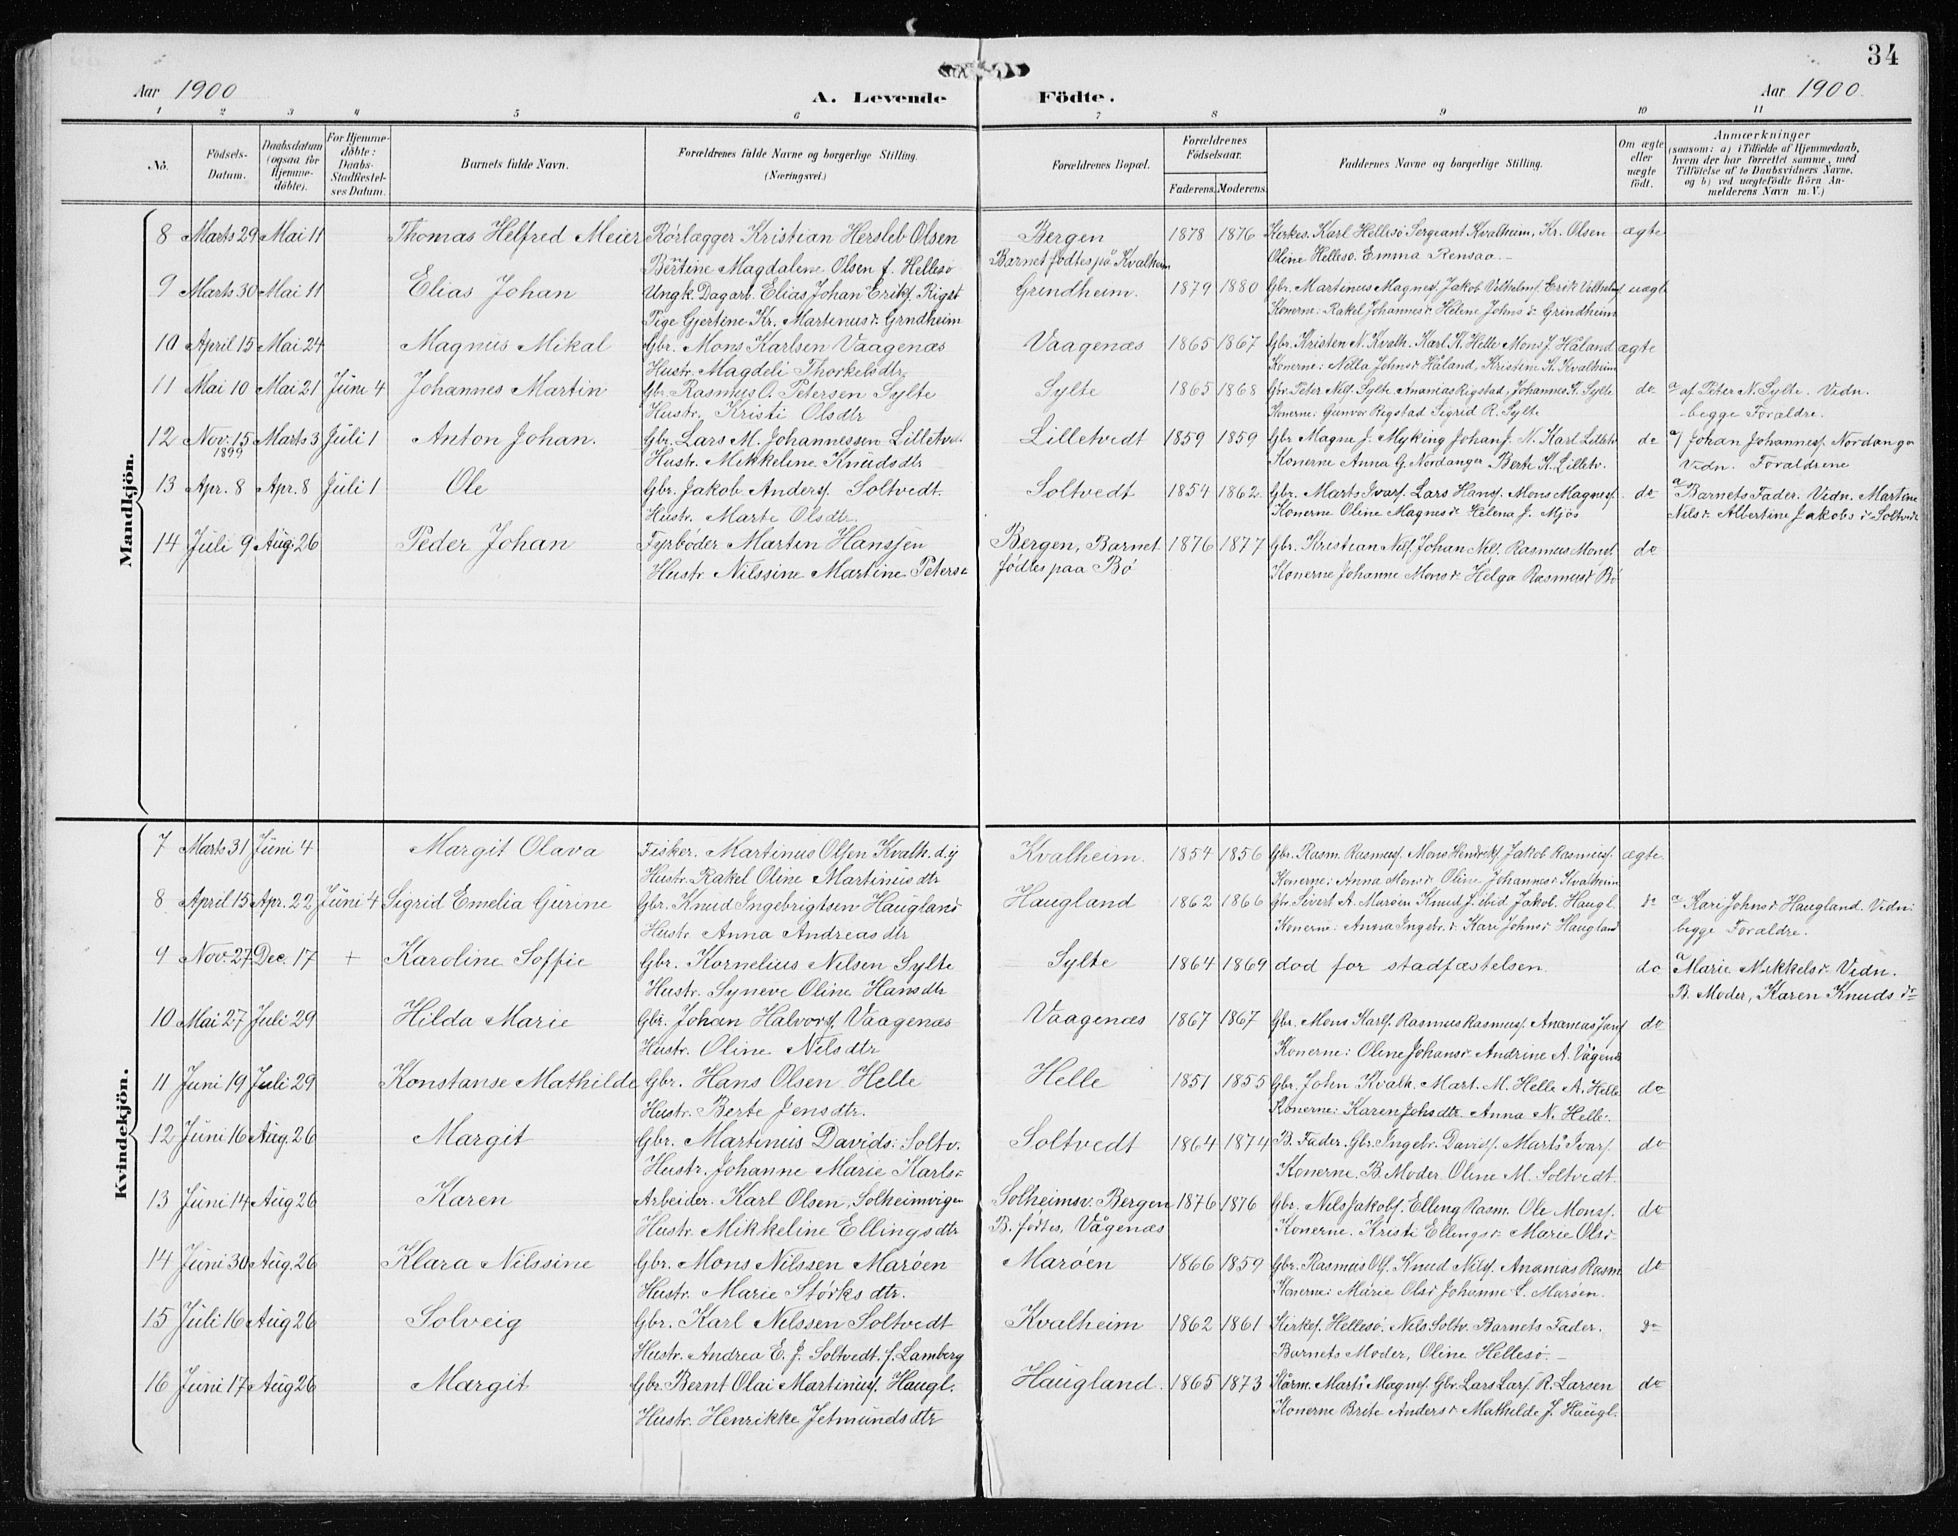 34
Aar 1900
A. Levende Födte.
Aar 1900
1 2 3 4 5 6 7 8 9 10 11
No.
Födsels-Datum.
Daabsdatum (ogsaa for Hjemme-döbte).
For Hjemme-döbte: Daabs-Stadfæstel-ses Datum.
Barnets fulde Navn.
Forældrenes fulde Navne og borgerlige Stilling. (Næringsvei.)
Forældrenes Bopæl.
Forældrenes Födselsaar.
Faderens. Moderens.
Faddernes Navne og borgerlige Stilling.
Om ægte eller uægte födt.
Anmærkninger (saasom: a) i Tilfælde af Hjemmedaab, hvem der har forrettet samme, med Tilföielse af to Daabsvidners Navne, og b) ved uægtefödte Börn An-melderens Navn m. V.)
Mandkjön.
8 Marts 29 Mai 11 Thomas Helfred Meier Rörlægger Kristian Hersleb Olsen Bergen 1878 1876 Kirkes. Karl Hellesö Sergeant Kvalheim, Kr. Olsen ægte
Bertine Magdalene Olsen f. Hellesö Barnet födtes på Kvalheim Oline Hellesö. Emma Rensaa.
9 Marts 30 Mai 11 Elias Johan Ungk. Dagarb. Elias Johan Eriks. Rigst Grindheim. 1879 1880 Gbr. Martinus Magnes. Jakob Vilhelms. Erik Vilhelms. uægte
Pige Gjertine Kr. Martinus dr. Grndheim Konerne: Rakel Johannes dr Helene Johns dr Grindheim
10 April 15 Mai 24 Magnus Mikal Gbr. Mons Karlsen Vaagenæs Vaagenæs 1865 1867 Gbr. Kristen N. Kvalh. Karl K. Helle Mons J. Håland ægte
Hustr. Magdeli Thorkelsdtr Konerne: Nella Johns dr Håland, Kristine K. Kvalheim
11 Mai 10 Mai 21 Juni 4 Johannes Martin Gbr. Rasmus O. Petersen Sylte Sylte 1865 1868 Gbr. Peter Nils. Sylte Ananias Rigstad, Johannes K. Sylte do a/ af Peter N. Sylte. Vidn.
Hustr. Kristi Olsdtr Konerne: Gunvor Rigstad Sigrid R. Sylte begge Foraldre.
12 Nov. 15 Marts 3 Juli 1 Anton Johan. Gbr. Lars M. Johannessen Lilletv. Lilletvedt 1859 1859 Gbr Magne J. Myking Johan J. N. Karl Lilletv do a/ Johan Johannes. Nordanger
1899 Hustr. Mikkeline Knudsdtr Konerne Anna G. Nordanger Berte K. Lilletv. Vidn. Foraldrene
13 Apr. 8 Apr. 8 Juli 1 Ole Gbr. Jakob Anders. Soltvedt. Soltvedt 1854 1862 Gbr. Marts Ivars. Lars Hans. Mons Magnes. do a Barnets Fader. Vidn. Martine
Hustr. Marte Olsdtr. Konerne Oline Magnes dr Helena J. Mjös Nils dr Albertine Jakobs dr Soltvedt
14 Juli 9 Aug. 26 Peder Johan Fyrböder Martin Hansjen Bergen, Barnet 1876 1877 Gbr. Kristian Nils. Johan Nil. Rasmus Mons. do
Hustr. Nilssine Martine Peters dr födtes paa Bö Konerne Johanne Mons dr Helga Rasmus dr Bö
Kvindekjön.
7 Marts 31 Juni 4 Margit Olava Fisker. Martinus Olsen Kvalh. Kvalheim. 1854 1856 Gbr. Rasm. Rasmus. Mons Hendriks. Jakob Rasmus. ægte
Hustr. Rakel Oline Martinusdtr Konerne: Anna Mons dr Oline Johannes dr Kvalheim
8 April 15 Apr. 22 Juni 4 Sigrid Emelia Gurine Gbr. Knud Ingebrigtsen Haugland Haugland 1862 1866 Gbr. Sivert A. Maröen Knud J. ibid Jakob. Haugl. do a/ Kari Johns dr Haugland. Vidn:
Hustr. Anna Andreasdtr Konerne: Anna Ingebr. dr Kari Johns dr Haugland begge Foraldre.
9 Nov. 27 Dec. 17 + Karoline Soffie Gbr. Kornelius Nilsen Sylte Sylte 1864 1869 död for stadfæstelsen. do a Marie Mikkels dr Vidn.
Hustr. Syneve Oline Hansdtr B. Moder, Karen Knuds dr
10 Mai 27 Juli 29 Hilda Marie Gbr. Johan Halvors. Vaagenæs Vaagenæs 1867 1867 Gbr. Mons Karls. Rasmus Rasmus. Ananias Jans. do
Hustr. Oline Nilsdtr Konerne: Oline Johans dr Andrine A. Vågenæs
11 Juni 19 Juli 29 Konstanse Mathilde Gbr. Hans Olsen Helle Helle 1851 1855 Gbr. John Kvalh. Mart. M. Helle A. Helle do
Hustr. Berte Jensdtr. Konerne: Karen Johsdtr Anna N. Helle.
12 Juni 16 Aug. 26 Margit Gbr. Martinus Davids. Soltv. Soltvedt 1864 1874 B. Fader. Gbr. Ingebr. Davids. Marts Ivars. do
Hustr. Johanne Marie Karls dr Konerne. B. Moder Oline M. Soltvedt
13 Juni 14 Aug 26 Karen Arbeider. Karl Olsen, Solheimvigen Solheimsv. Bergen 1876 1876 Gbr. Nils Jakobs. Elling Rasm. Ole Mons. do
Hustr. Mikkeline Ellingsdtr B. födtes, Vågenæs Konerne. Kristi Ellings dr Marie Ols dr
14 Juni 30 Aug. 26 Klara Nilssine Gbr. Mons Nilssen Maröen Maröen 1866 1859 Gbr. Rasmus Ols. Knud Nils. Ananias Rasm do
Hustr. Marie Störksdtr. Konerne: Marie Ols dr Johanne L. Maröen.
15 Juli 16 Aug 26 Solveig Gbr. Karl Nilssen Soltvedt Kvalheim 1862 1861 Kirkes. Hellesö. Nils Soltv. Barnets Fader. do
Hustr. Andrea E. J. Soltvedt. f. Lamberg Barnets Moder, Oline Hellesö.
16 Juni 17 Aug 26 Margit Gbr. Bernt Olai Martinus. Haugl. Haugland. 1865 1873 Kårm. Marts Magnes. Gbr. Lars Lars. R. Larsen do
Hustr. Henrikke Jetmundsdtr Konerne Brite Anders dr Mathilde J. Haugl.